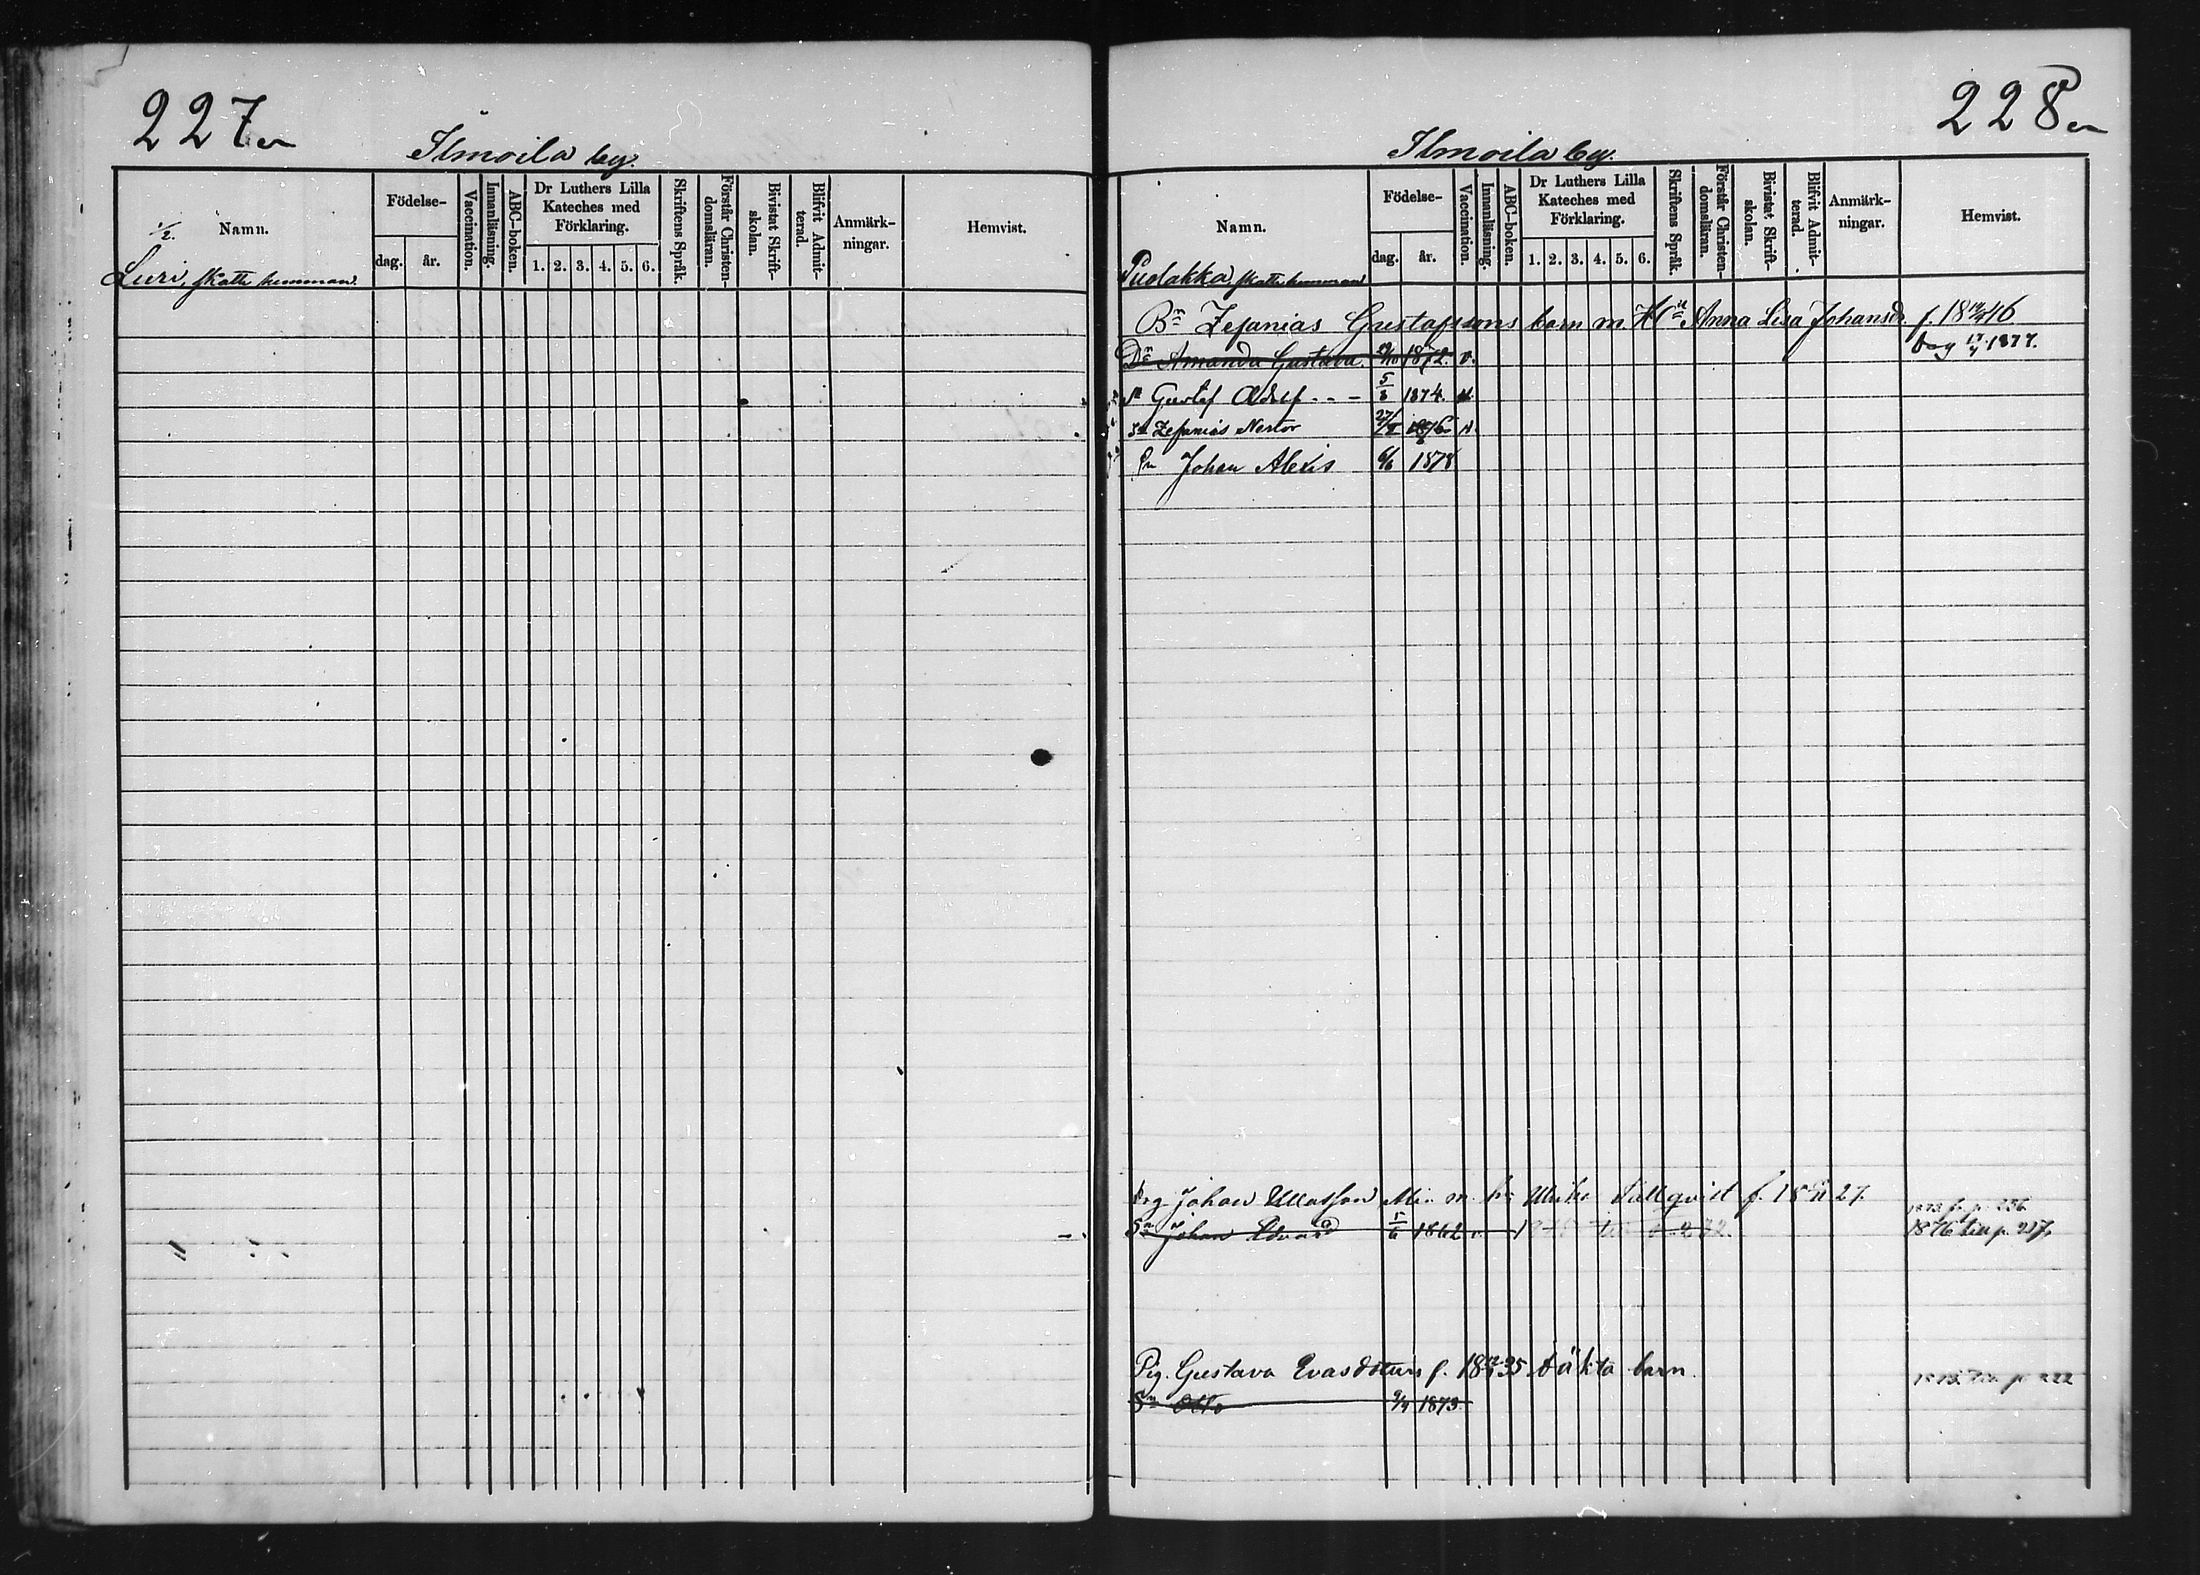 227
Ilmoila by.
Namn.
Födelse-
dag. år.
Vaccination.
Innanläsning.
ABC-boken.
Dr Luthers Lilla Kateches med Förklaring.
1. 2. 3. 4. 5. 6.
Skriftens Språk.
Förstår Christendomsläran.
Bivistat Skriftskolan.
Blifvit Admitterad.
Anmärkningar.
Hemvist.
1/2.
Luri, skatte hemman.
228
Ilmoila by.
Namn.
Födelse-
dag. år.
Vaccination.
Innanläsning.
ABC-boken.
Dr Luthers Lilla Kateches med Förklaring.
1. 2. 3. 4. 5. 6.
Skriftens Språk.
Förstår Christendomsläran.
Bivistat Skriftskolan.
Blifvit Admitterad.
Anmärkningar.
Hemvist.
Puolakka skatte hemman
Bn Zefanias Gustafssons barn m. Hn Anna Lisa Johansdr f. 46.
1877.
Dr Amanda Gustava. 1872. v.
Sn Gustaf Adolf - - - 5/3 1874. v.
Sn Zefanias Nestor 1876
Sn Johan Alexis 6/6 1878
Johan m. Ulrika Sällqvist f. 27.
Sn Johan Edvard 5/6 1862 v.
1876 till p. 237.
Pig. Gustava Evasdoturs f. 35 oäkta barn.
Sn Otto 1873.